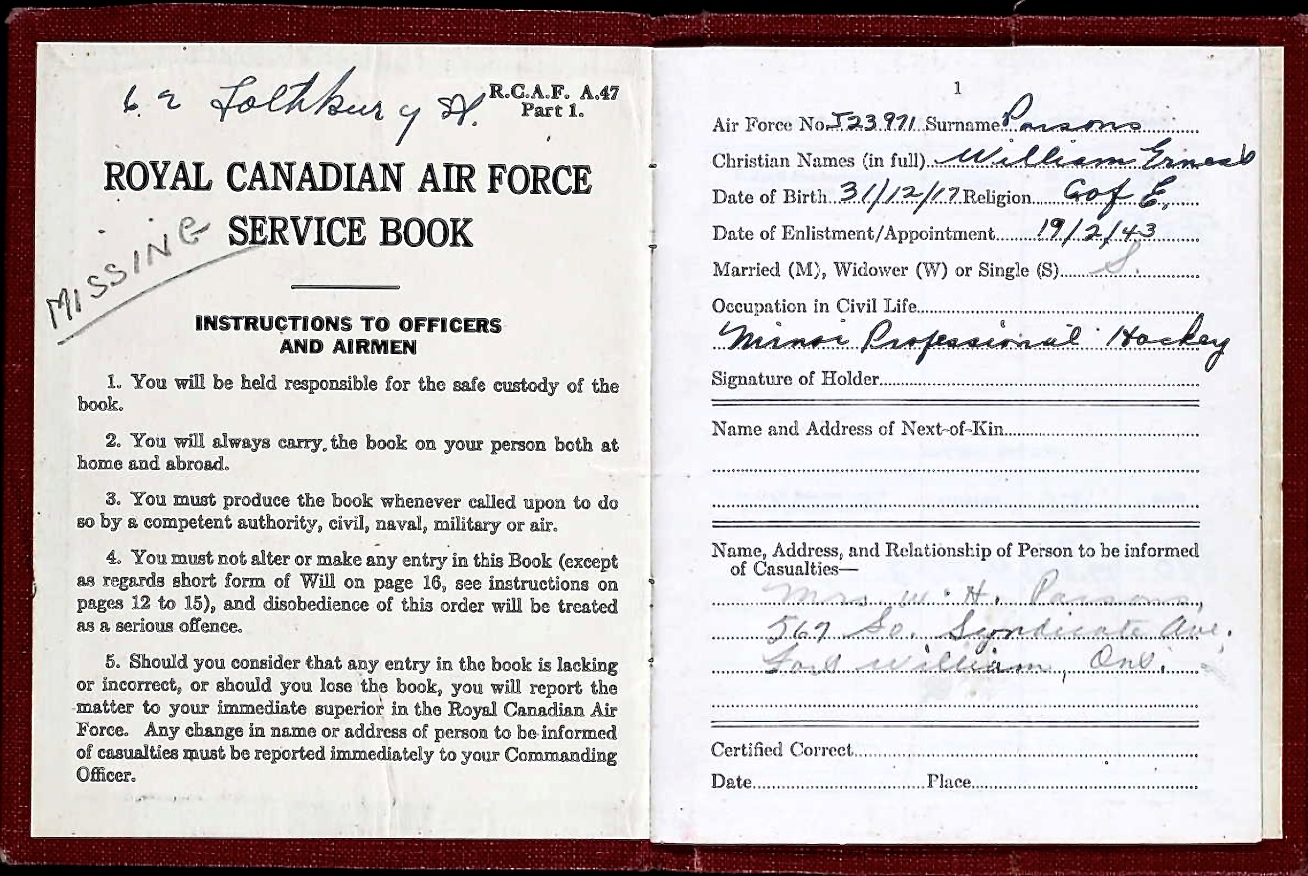 6. 2 Lothbury St.
R.C.A.F. A.47
Part 1.
ROYAL CANADIAN AIR FORCE
SERVICE BOOK
MISSING
INSTRUCTIONS TO OFFICERS
AND AIRMEN
1. You will be held responsible for the safe custody of the
book.
2. You will always carry the book on your person both at
home and abroad.
3. You must produce the book whenever called upon to do
so by a competent authority, civil, naval, military or air.
4. You must not alter or make any entry in this Book (except
as regards short form of Will on page 16, see instructions on
pages 12 to 15), and disobedience of this order will be treated
as a serious offence.
5. Should you consider that any entry in the book is lacking
or incorrect, or should you lose the book, you will report the
matter to your immediate superior in the Royal Canadian Air
Force. Any change in name or address of person to be informed
of casualties must be reported immediately to your Commanding
Officer.
1
Air Force No. J23971 Surname Parsons
Christian Names (in full) William Ernest
Date of Birth 31/12/17 Religion C of E.
Date of Enlistment/Appointment 19/2/43
Married (M), Widower (W) or Single (S) S.
Occupation in Civil Life
Minor Professional Hockey
Signature of Holder
Name and Address of Next-of-Kin
Name, Address, and Relationship of Person to be informed
of Casualties—
Mrs. W. H. Parsons,
567 So. Syndicate Ave.
Fort William, Ont.
Certified Correct
Date Place